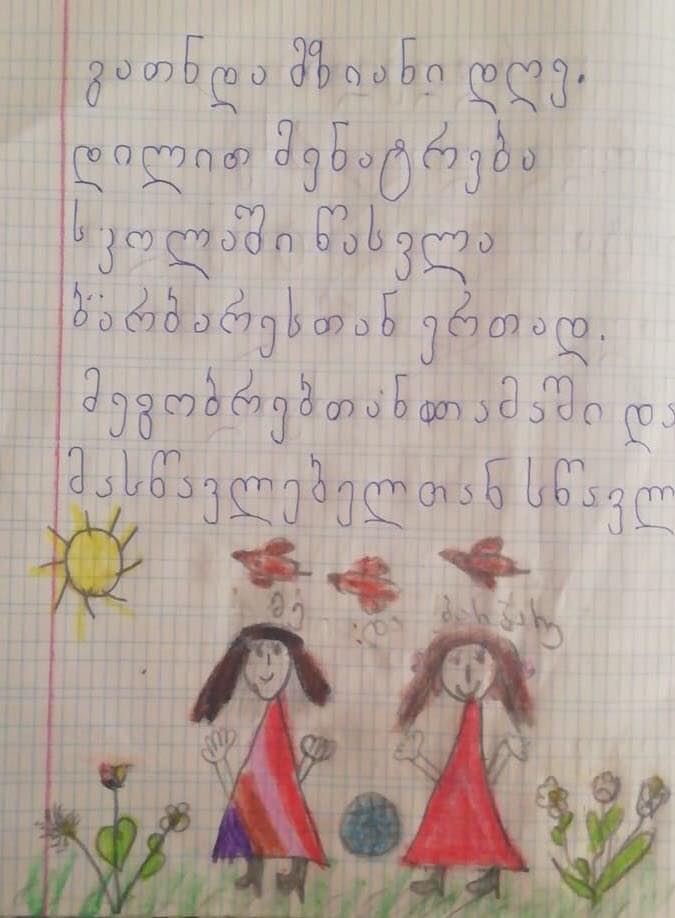 გათენდა მზიანი დღე.
დილით მენატრება
სკოლაში წასვლა
ბარბარესთან ერთად.
მეგობრებთან თამაში და
მასწავლებელთან სწავლ